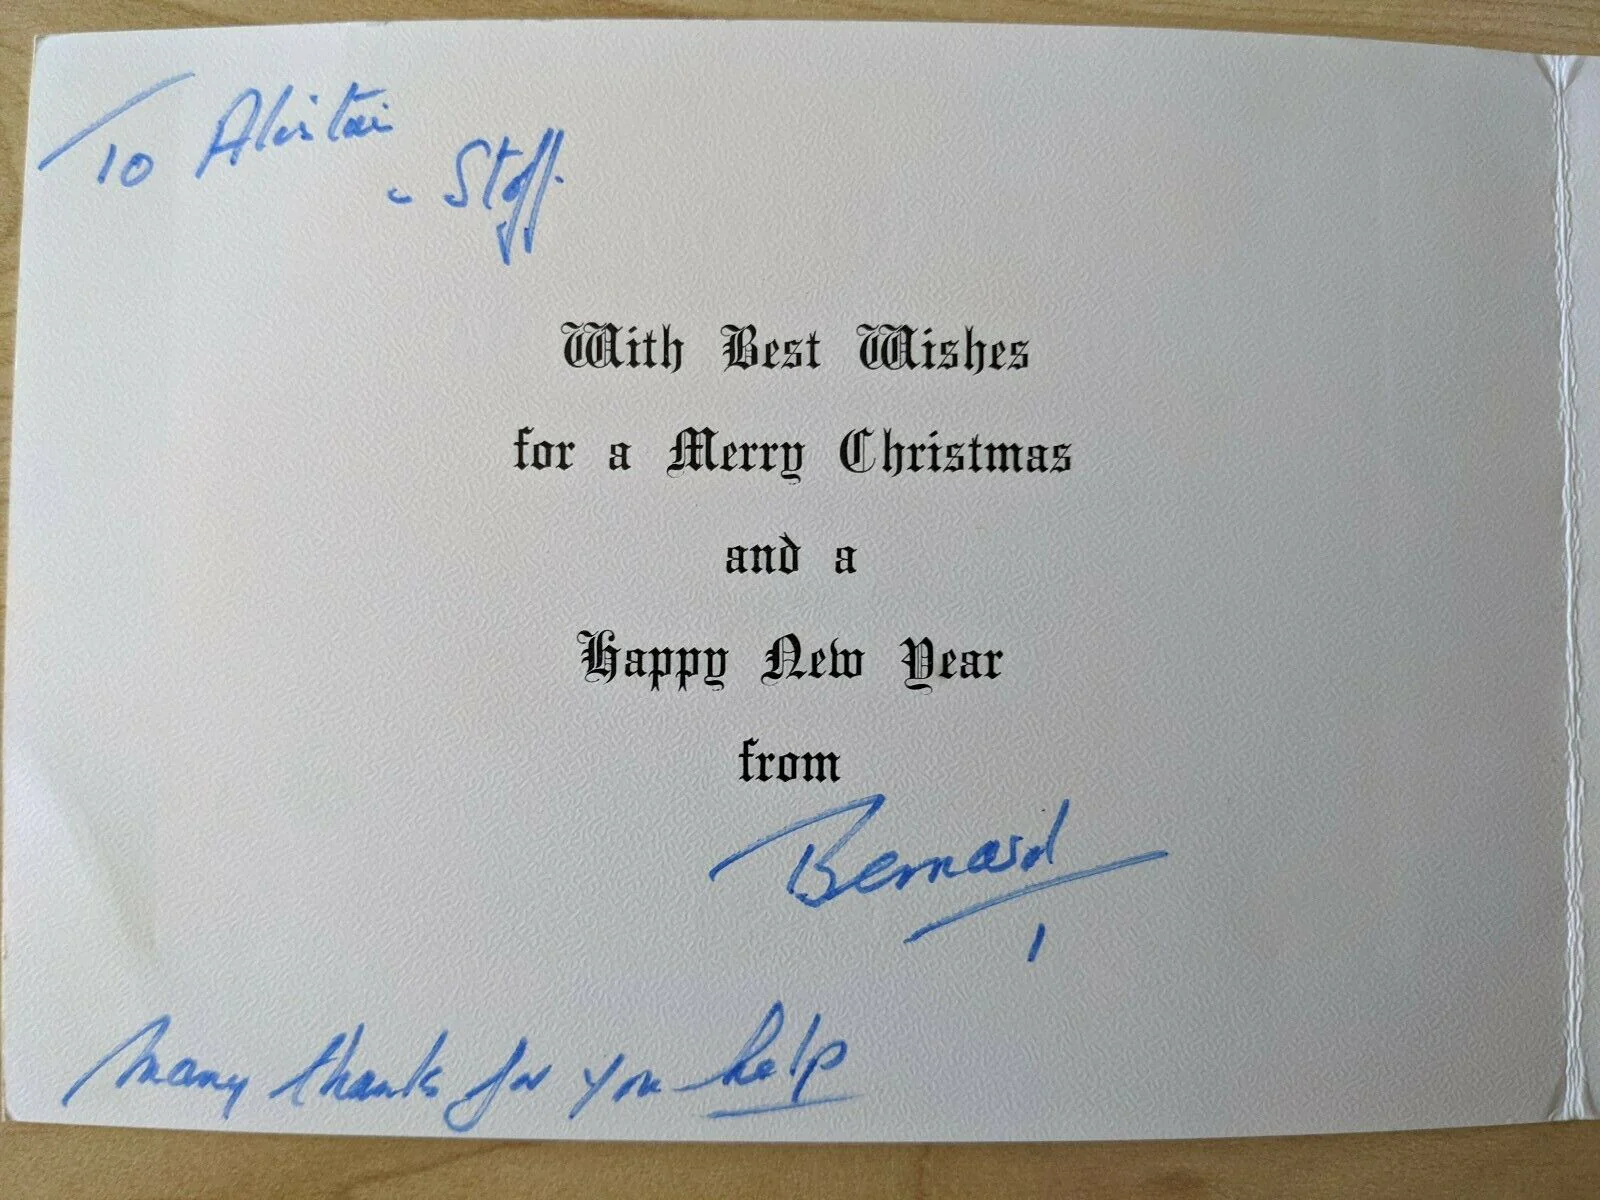 To Alistair
& Staff.
With Best Wishes
for a Merry Christmas
and a
Happy New Year
from
Bernard
Many thanks for you help